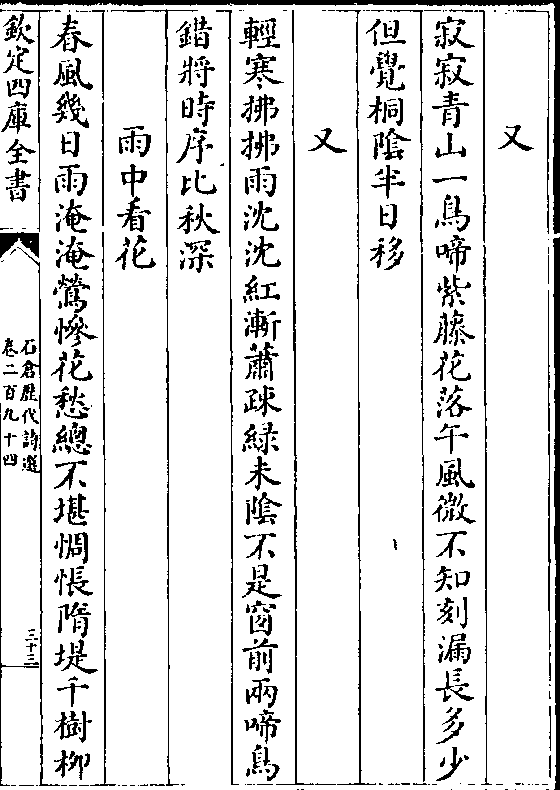 又
寂寂青山一鳥啼紫藤花落午風微不知刻漏長多少
但覺桐陰半日移
又
輕寒拂拂雨沈沈紅漸蕭疎綠未陰不是窗前兩啼鳥
錯將時序比秋深
雨中看花
春風幾日雨淹淹鶯慘花愁總不堪惆悵隋堤千樹柳
欽定四庫全書
石倉歷代詩選
卷二百九十四
三十三